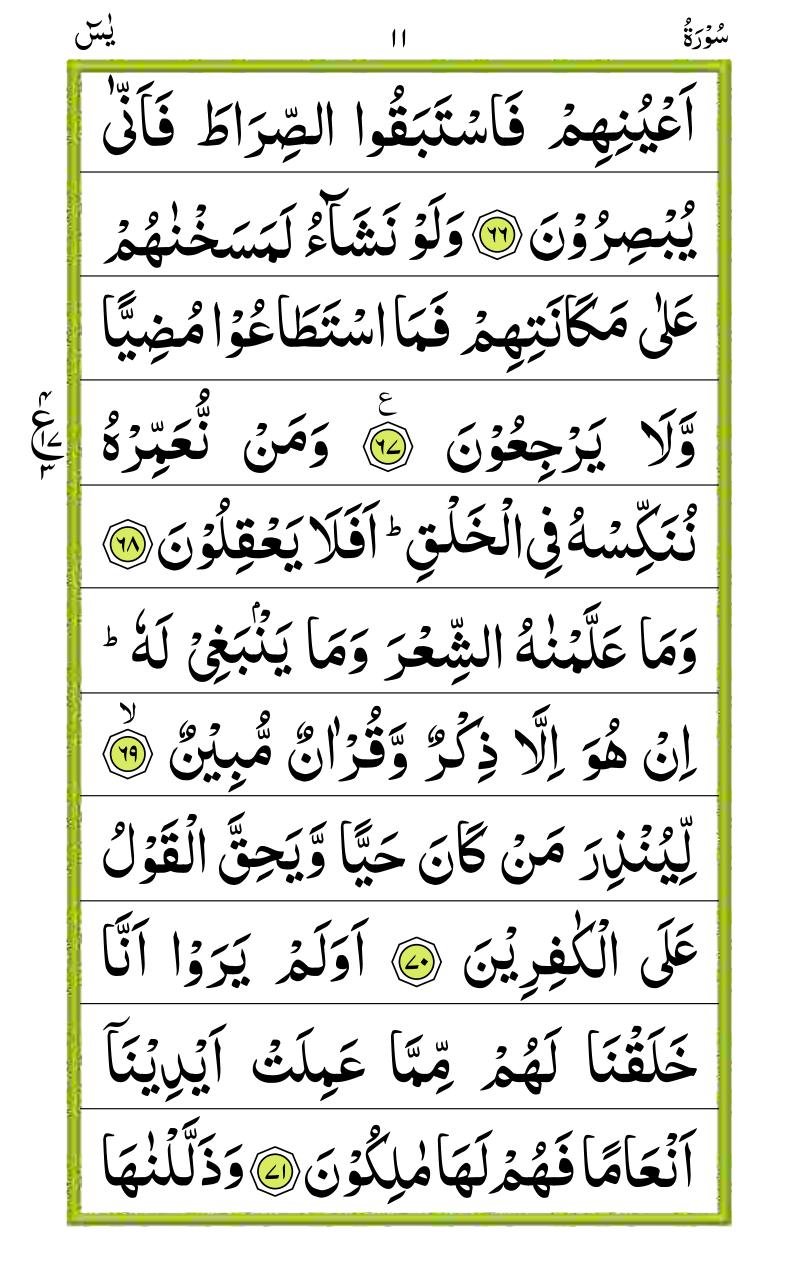 سُوْرَةُ ١١ يٰسٓ
اَعْيُنِهِمْ فَاسْتَبَقُوا الصِّرَاطَ فَاَنّٰى
يُبْصِرُوْنَ ٦٦ وَلَوْ نَشَآءُ لَمَسَخْنٰهُمْ
عَلٰى مَكَانَتِهِمْ فَمَا اسْتَطَاعُوْا مُضِيًّا
وَّلَا يَرْجِعُوْنَ ٦٧ ع وَمَنْ نُّعَمِّرْهُ
٤ ع ١٧ ٣
نُنَكِّسْهُ فِى الْخَلْقِ ؕ اَفَلَا يَعْقِلُوْنَ ٦٨
وَمَا عَلَّمْنٰهُ الشِّعْرَ وَمَا يَنْۢبَغِىْ لَهٗ ؕ
اِنْ هُوَ اِلَّا ذِكْرٌ وَّقُرْاٰنٌ مُّبِيْنٌ ٦٩ ۙ
لِّيُنْذِرَ مَنْ كَانَ حَيًّا وَّيَحِقَّ الْقَوْلُ
عَلَى الْكٰفِرِيْنَ ٧٠ اَوَلَمْ يَرَوْا اَنَّا
خَلَقْنَا لَهُمْ مِّمَّا عَمِلَتْ اَيْدِيْنَاۤ
اَنْعَامًا فَهُمْ لَهَا مٰلِكُوْنَ ٧١ وَذَلَّلْنٰهَا